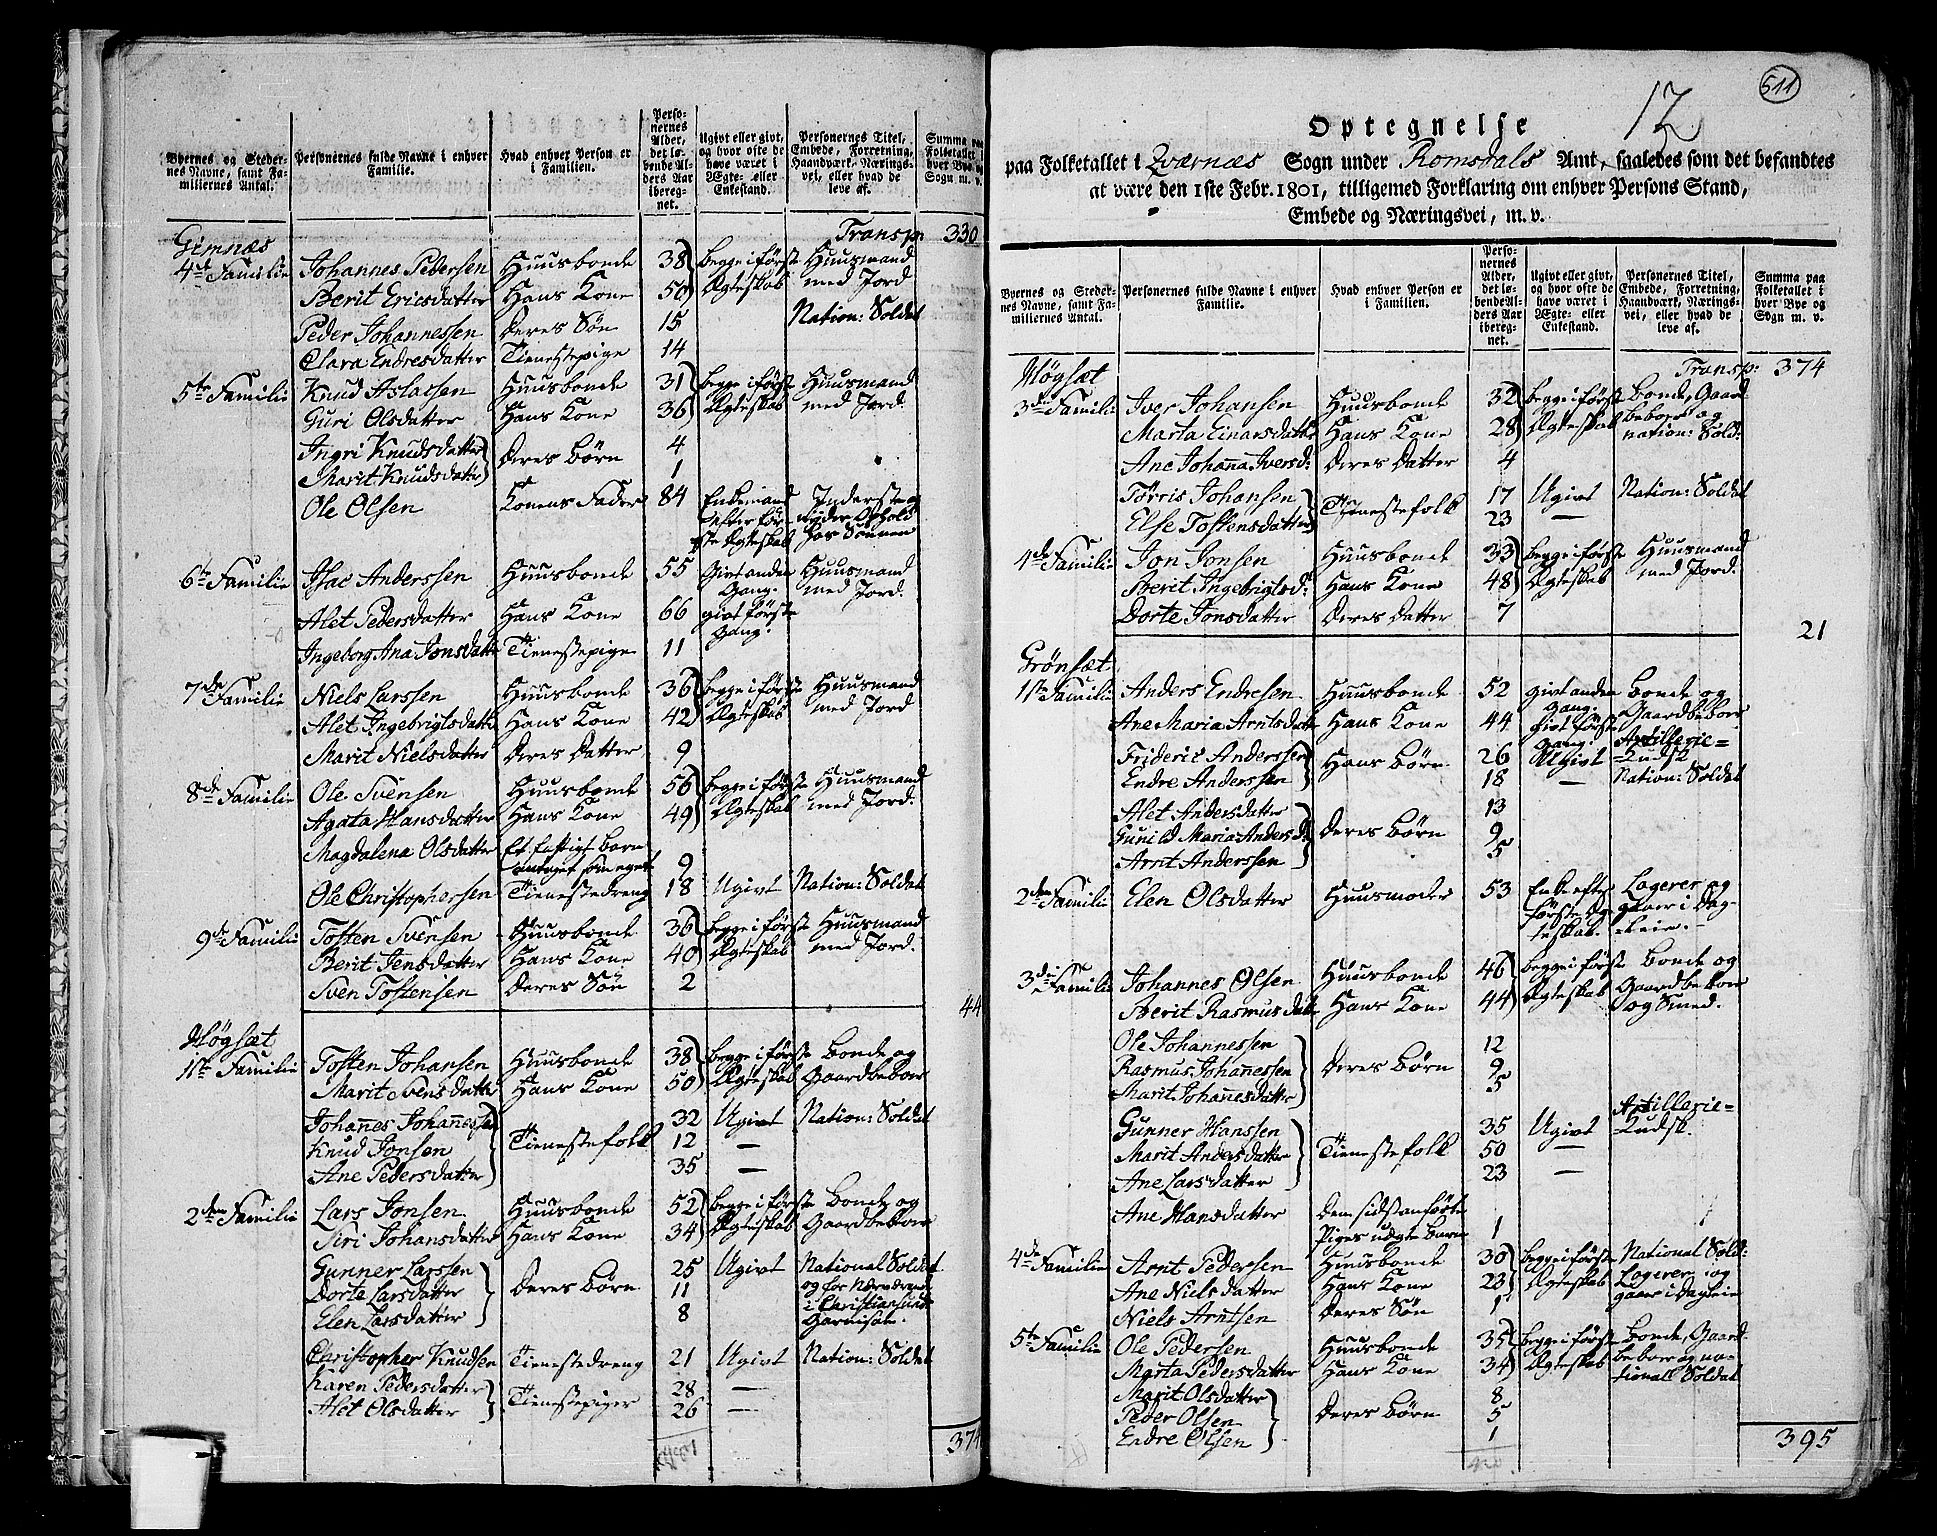 Byernes og Steder-nes Navne, samt Fa-miliernes Antal. | Personernes fulde Navne i enhver Familie. | Hvad enhver Person er i Familien. | Perso-nernes Alder, det lø-bende Al-ders Aar ibereg-net. | Ugivt eller givt, og hvor ofte de have været i Ægte- eller Enkestand. | Personernes Titel, Embede, Forretning, Haandværk, Nærings-vei, eller hvad de leve af. | Summa paa Folketallet i hver Bye og Sogn m. v.
Gimnæs | Transp: 330
4de Familie Johannes Pedersen Huusbonde 38 begge i første Huusmand
Berit Ericsdatter Hans Kone 50 Ægteskab med Jord
Peder Johannessen deres Søn 15 Nation: Soldat
Clara Endresdatter Tienestepige 14
5te Familie Knud Aslaksen Huusbonde 31 begge i første Huusmand
Guri Olsdatter Hans Kone 36 Ægteskab med Jord.
Ingri Knudsdatter deres Børn 4
Marit Knudsdatter 1
Ole Olsen Konens Fader 84 Enkemand Inderste og
efter før- nyder Ophold
ste Ægteskab hos Sønnen
6te Familie Isac Anderssen Huusbonde 55 Givt anden Huusmand
Gang. med Jord.
Alet Pedersdatter Hans Kone 66 givt første
Gang.
Ingeborg Ana Jonsdatter Tienestepige 11
7de Familie Niels Larssen Huusbonde 36 begge i første Huusmand
Alet Ingebrigtsdatter Hans Kone 42 Ægteskab med Jord
Marit Nielsdatter deres datter 9
8de Familie Ole Svensen Huusbonde 56 begge i første Huusmand
Agata Hansdatter Hans Kone 49 Ægteskab med Jord.
Magdalena Olsdatter Et fattigt barn
antaget som eget 9
Ole Christophersen Tienestedreng 18 Ugivt Nation: Soldat
9de Familie Tosten Svensen Huusbonde 36 begge i første Huusmand
Berit Jensdatter Hans Kone 40 Ægteskab med Jord.
Sven Tostensen deres Søn 2
44
Høgsæt
1ste Familie Tosten Johansen Huusbonde 38 begge i første Bonde og
Marit Svensdatter Hans Kone 50 Ægteskab Gaardbeboer
Johannes Johannessen 32 Ugivt Nation: Soldat
Knud Jonsen Tienestefolk 12 —
Ane Pedersdatter 35 —
2den Familie Lars Jonsen Huusbonde 52 begge i første Bonde og
Siri Johansdatter Hans Kone 34 Ægteskab Gaardbeboer
Gunner Larssen 25 Ugivt National Soldat
Dorte Larsdatter deres Børn 11 og for Nærværende
Elen Larsdatter 8 i Christiansunds
Garnison.
Christopher Knudsen Tienestedreng 21 Ugivt Nation: Soldat
Karen Pedersdatter Tienestepiger 28 —
Alet Olsdatter 26 —
374
511
12
Optegnelse
paa Folketallet i Qværnæs Sogn under Romsdals Amt, saaledes som det befandtes
at være den 1ste Febr. 1801, tilligemed Forklaring om enhver Persons Stand,
Embede og Næringsvei, m. v.
Byernes og Steder-nes Navne, samt Fa-miliernes Antal. | Personernes fulde Navne i enhver Familie. | Hvad enhver Person er i Familien. | Perso-nernes Alder, det lø-bende Al-ders Aar ibereg-net. | Ugivt eller givt, og hvor ofte de have været i Ægte- eller Enkestand. | Personernes Titel, Embede, Forretning, Haandværk, Nærings-vei, eller hvad de leve af. | Summa paa Folketallet i hver Bye og Sogn m. v.
Høgsæt Transp: 374
3die Familie Iver Johansen Huusbonde 32 begge i første Bonde, Gaard-
Marta Einarsdatter Hans Kone 28 Ægteskab beboer og
nation: Sold:
Ane Johanna Iversd: deres datter 4
Tørris Johansen Tienestefolk 17 Ugivt Nation: Soldat
Else Tostensdatter 23 —
4de Familie Jon Jonsen Huusbonde 33 begge i første Huusmand
Berit Ingebrigtsd: Hans Kone 48 Ægteskab med Jord.
Dorte Jonsdatter deres datter 7
21
Grønsæt
1ste Familie Anders Endresen Huusbonde 52 givt anden Bonde og
Gang. Gaardbeboer
Ane Maria Arntsdatter Hans Kone 44 givt første
Gang. Artillerie=
Frideric Anderssen Hans Børn 26 Ugivt =Kudsk
Endre Anderssen 18 — Nation: Soldat
Alet Andersdatter 13
Gunild Maria Andersd: deres Børn 9
Arnt Anderssen 5
2den Familie Elen Olsdatter Huusmoder 53 Enke efter Logerer og
første Æg- gaaer i Dag-
teskab. leie.
3die Familie Johannes Olsen Huusbonde 46 begge i første Bonde og
Berit Rasmusdatter Hans Kone 44 Ægteskab Gaardbeboer
og Smed.
Ole Johannessen 12
Rasmus Johannessen deres Børn 9
Marit Johannesdatter 5
Gunner Hanssen 35 Ugivt Artillerie=
Kudsk.
Marit Andersdatter Tienestefolk 50 —
Ane Larsdatter 23 —
Ane Hansdatter Den sidstanførte
Piges uægte barn 1
4de Familie Arnt Pedersen Huusbonde 30 begge i første National Sold:
Ane Nielsdatter Hans Kone 23 Ægteskab Logerer og
Niels Arntsen deres Søn 1 gaaer i dagleie
5te Familie Ole Pedersen Huusbonde 35 begge i første Bonde, Gaard-
Marta Pedersdatter Hans Kone 34 Ægteskab beboer og na-
tional Soldat
Marit Olsdatter 8
Peder Olsen deres Børn 5
Endre Olsen 1
395